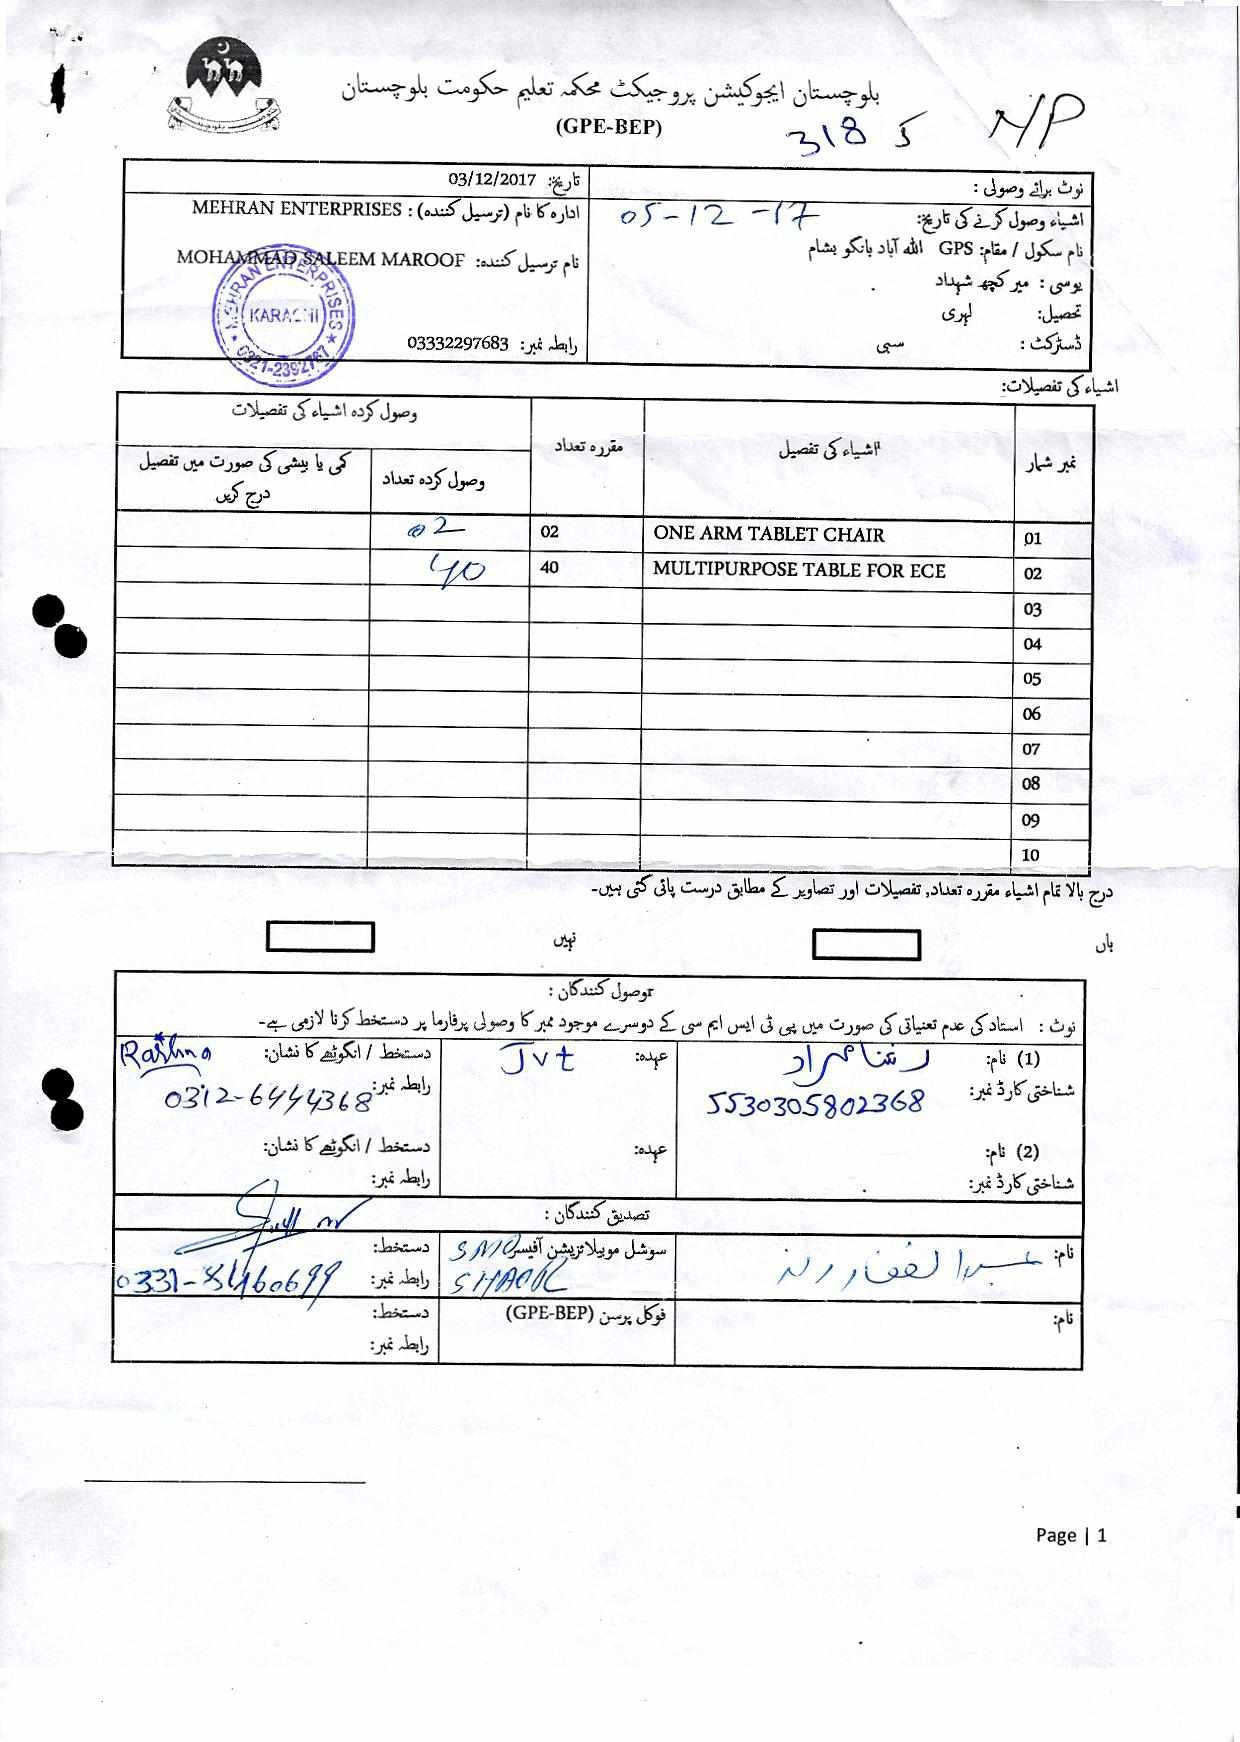 بلوچستان ایجوکیشن پروجیکٹ محکمہ تعلیم حکومت بلوچستان
(GPE-BEP)
318 N/P
نوٹ برائے وصولی :
اشیاء وصول کرنے کی تاریخ: 05-12-17
نام سکول / مقام: GPS اللہ آباد بانگو بشام
یوسی : میر کچھ شہداد
تحصیل: لہری
ڈسٹرکٹ : سبی
تاریخ: 03/12/2017
ادارہ کا نام (ترسیل کنندہ) : MEHRAN ENTERPRISES
نام ترسیل کنندہ: MOHAMMAD SALEEM MAROOF
رابطہ نمبر: 03332297683
MEHRAN ENTERPRISES
KARACHI
0321-2392767
اشیاء کی تفصیلات:
نمبر شمار اشیاء کی تفصیل مقررہ تعداد وصول کردہ اشیاء کی تفصیلات
وصول کردہ تعداد کمی یا بیشی کی صورت میں تفصیل درج کریں
01 ONE ARM TABLET CHAIR 02 02
02 MULTIPURPOSE TABLE FOR ECE 40 40
03
04
05
06
07
08
09
10
درج بالا تمام اشیاء مقررہ تعداد, تفصیلات اور تصاویر کے مطابق درست پائی گئی ہیں۔
ہاں نہیں
وصول کنندگان :
نوٹ : استاد کی عدم تعنیاتی کی صورت میں پی ٹی ایس ایم سی کے دوسرے موجود ممبر کا وصولی پرفارما پر دستخط کرنا لازمی ہے۔
(1) نام: عہدہ: Jvt دستخط / انگوٹھے کا نشان: Rashna
شناختی کارڈ نمبر: 5530305802368 رابطہ نمبر: 0312-6444368
(2) نام: عہدہ: دستخط / انگوٹھے کا نشان:
شناختی کارڈ نمبر: رابطہ نمبر:
تصدیق کنندگان :
نام: عبدالغفار سوشل موبیلائزیشن آفیسر SMO دستخط:
رابطہ نمبر:
نام: فوکل پرسن (GPE-BEP) دستخط:
رابطہ نمبر:
Page | 1